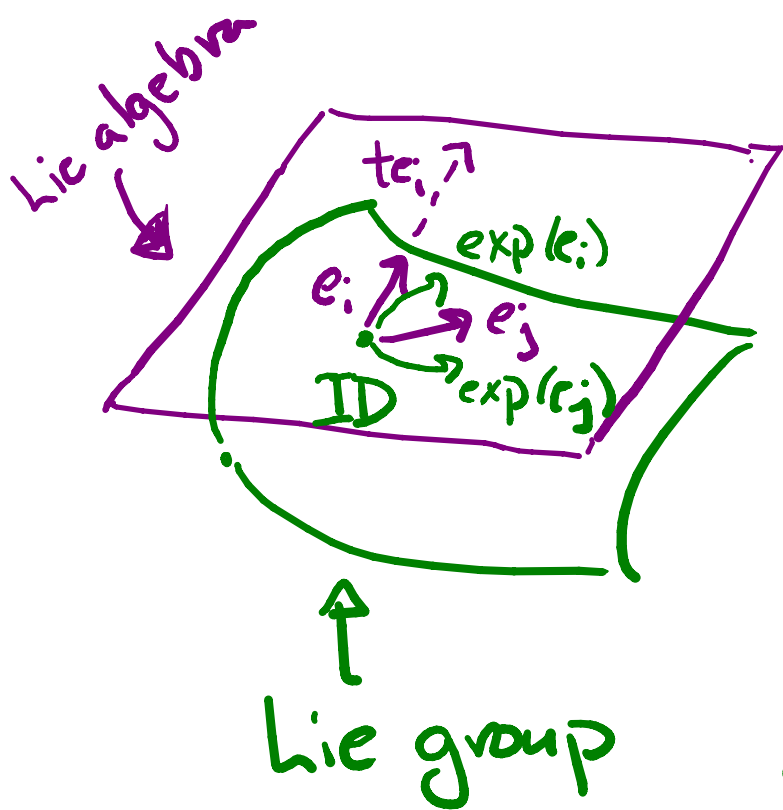 Lie algebra
te_i
exp(e_i)
e_i
e_j
ID
exp(e_j)
Lie group